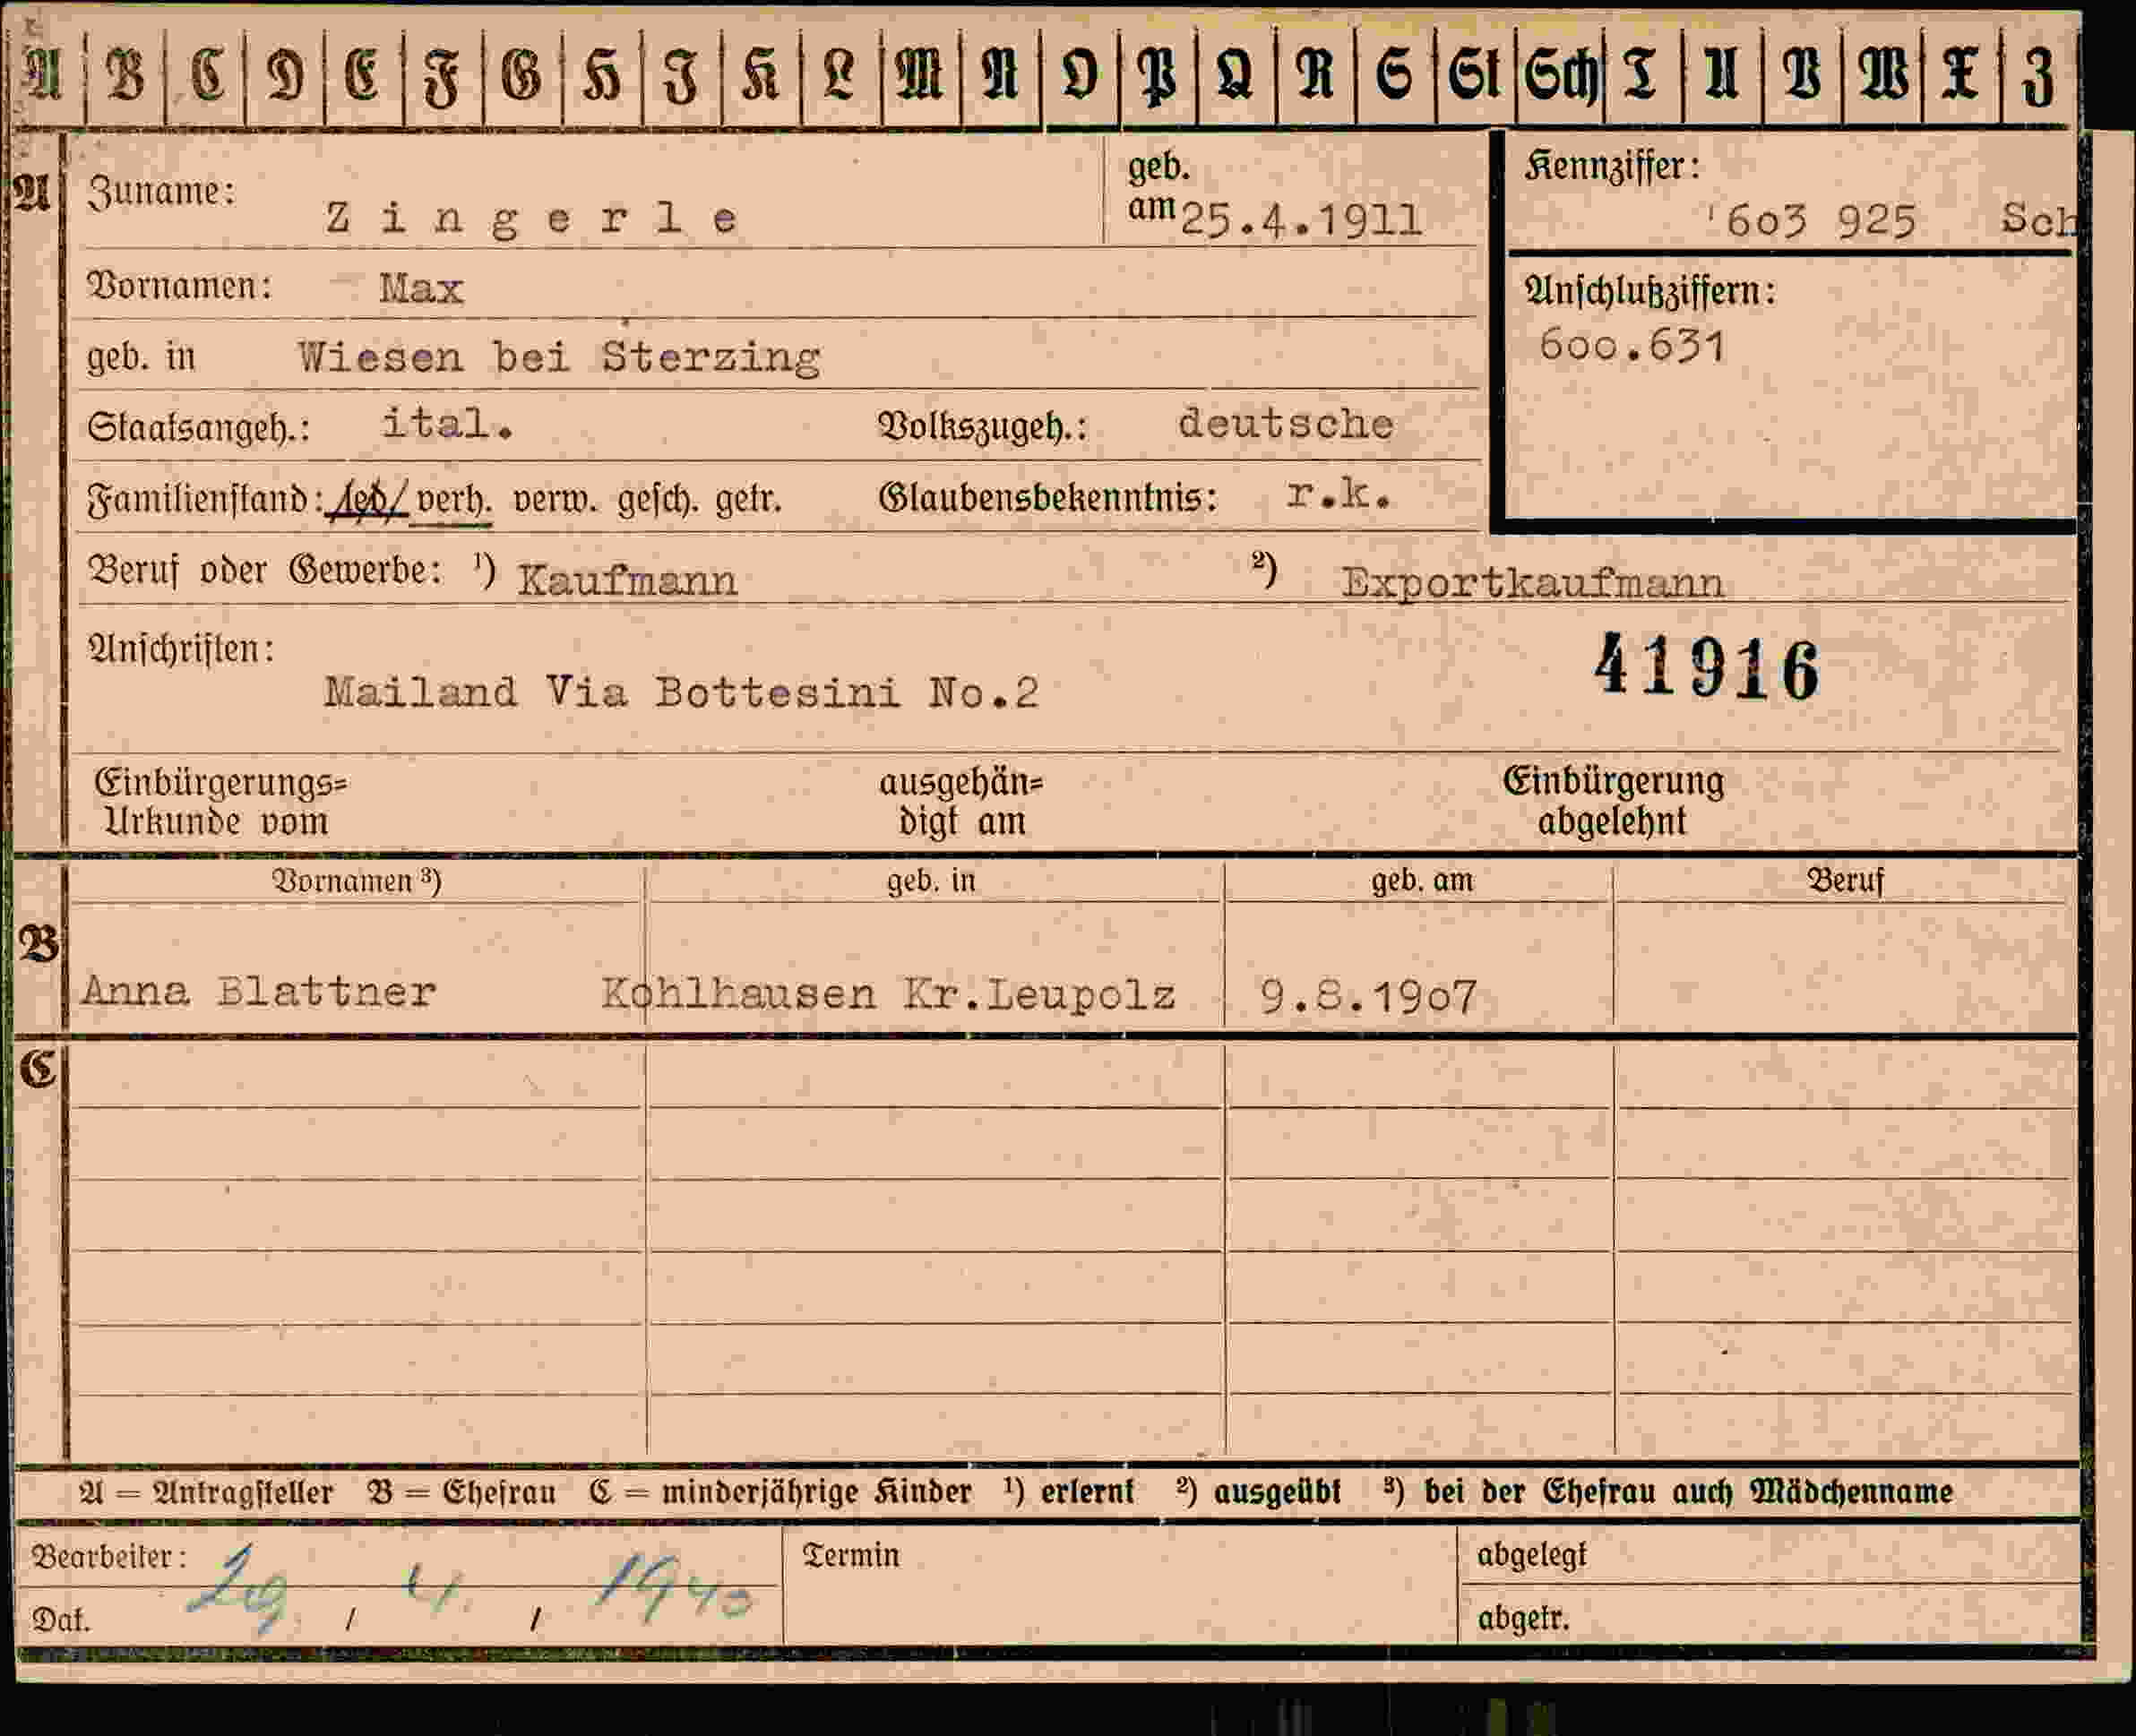 A B C D E F G H I K L M N O P Q R S St Sch T U V W X Z
A Zuname: Zingerle geb. am 25.4.1911
Kennziffer: '6o3 925 Sch
Vornamen: Max
Anschlußziffern:
6oo.631
geb. in Wiesen bei Sterzing
Staatsangeh.: ital. Volkszugeh.: deutsche
Familienstand: led. verh. verw. gesch. getr. Glaubensbekenntnis: r.k.
Beruf oder Gewerbe: ¹) Kaufmann ²) Exportkaufmann
Anschriften:
41916
Mailand Via Bottesini No.2
Einbürgerungs= ausgehän= Einbürgerung
Urkunde vom digt am abgelehnt
Vornamen ³) geb. in geb. am Beruf
B
Anna Blattner Kohlhausen Kr.Leupolz 9.8.19o7
C
A = Antragsteller B = Ehefrau C = minderjährige Kinder ¹) erlernt ²) ausgeübt ³) bei der Ehefrau auch Mädchenname
Bearbeiter: Termin abgelegt
29. 4. 1940
Dat. / / abgetr.